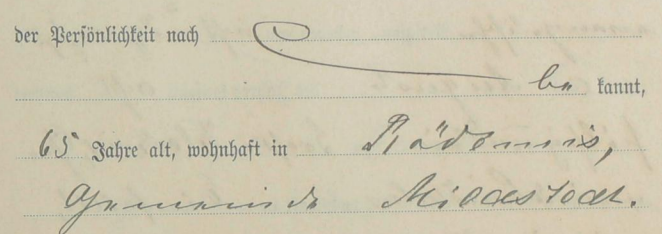 der Persönlichkeit nach
be kannt,
65 Jahre alt, wohnhaft in Rödemis,
Gemeinde Mildstedt.